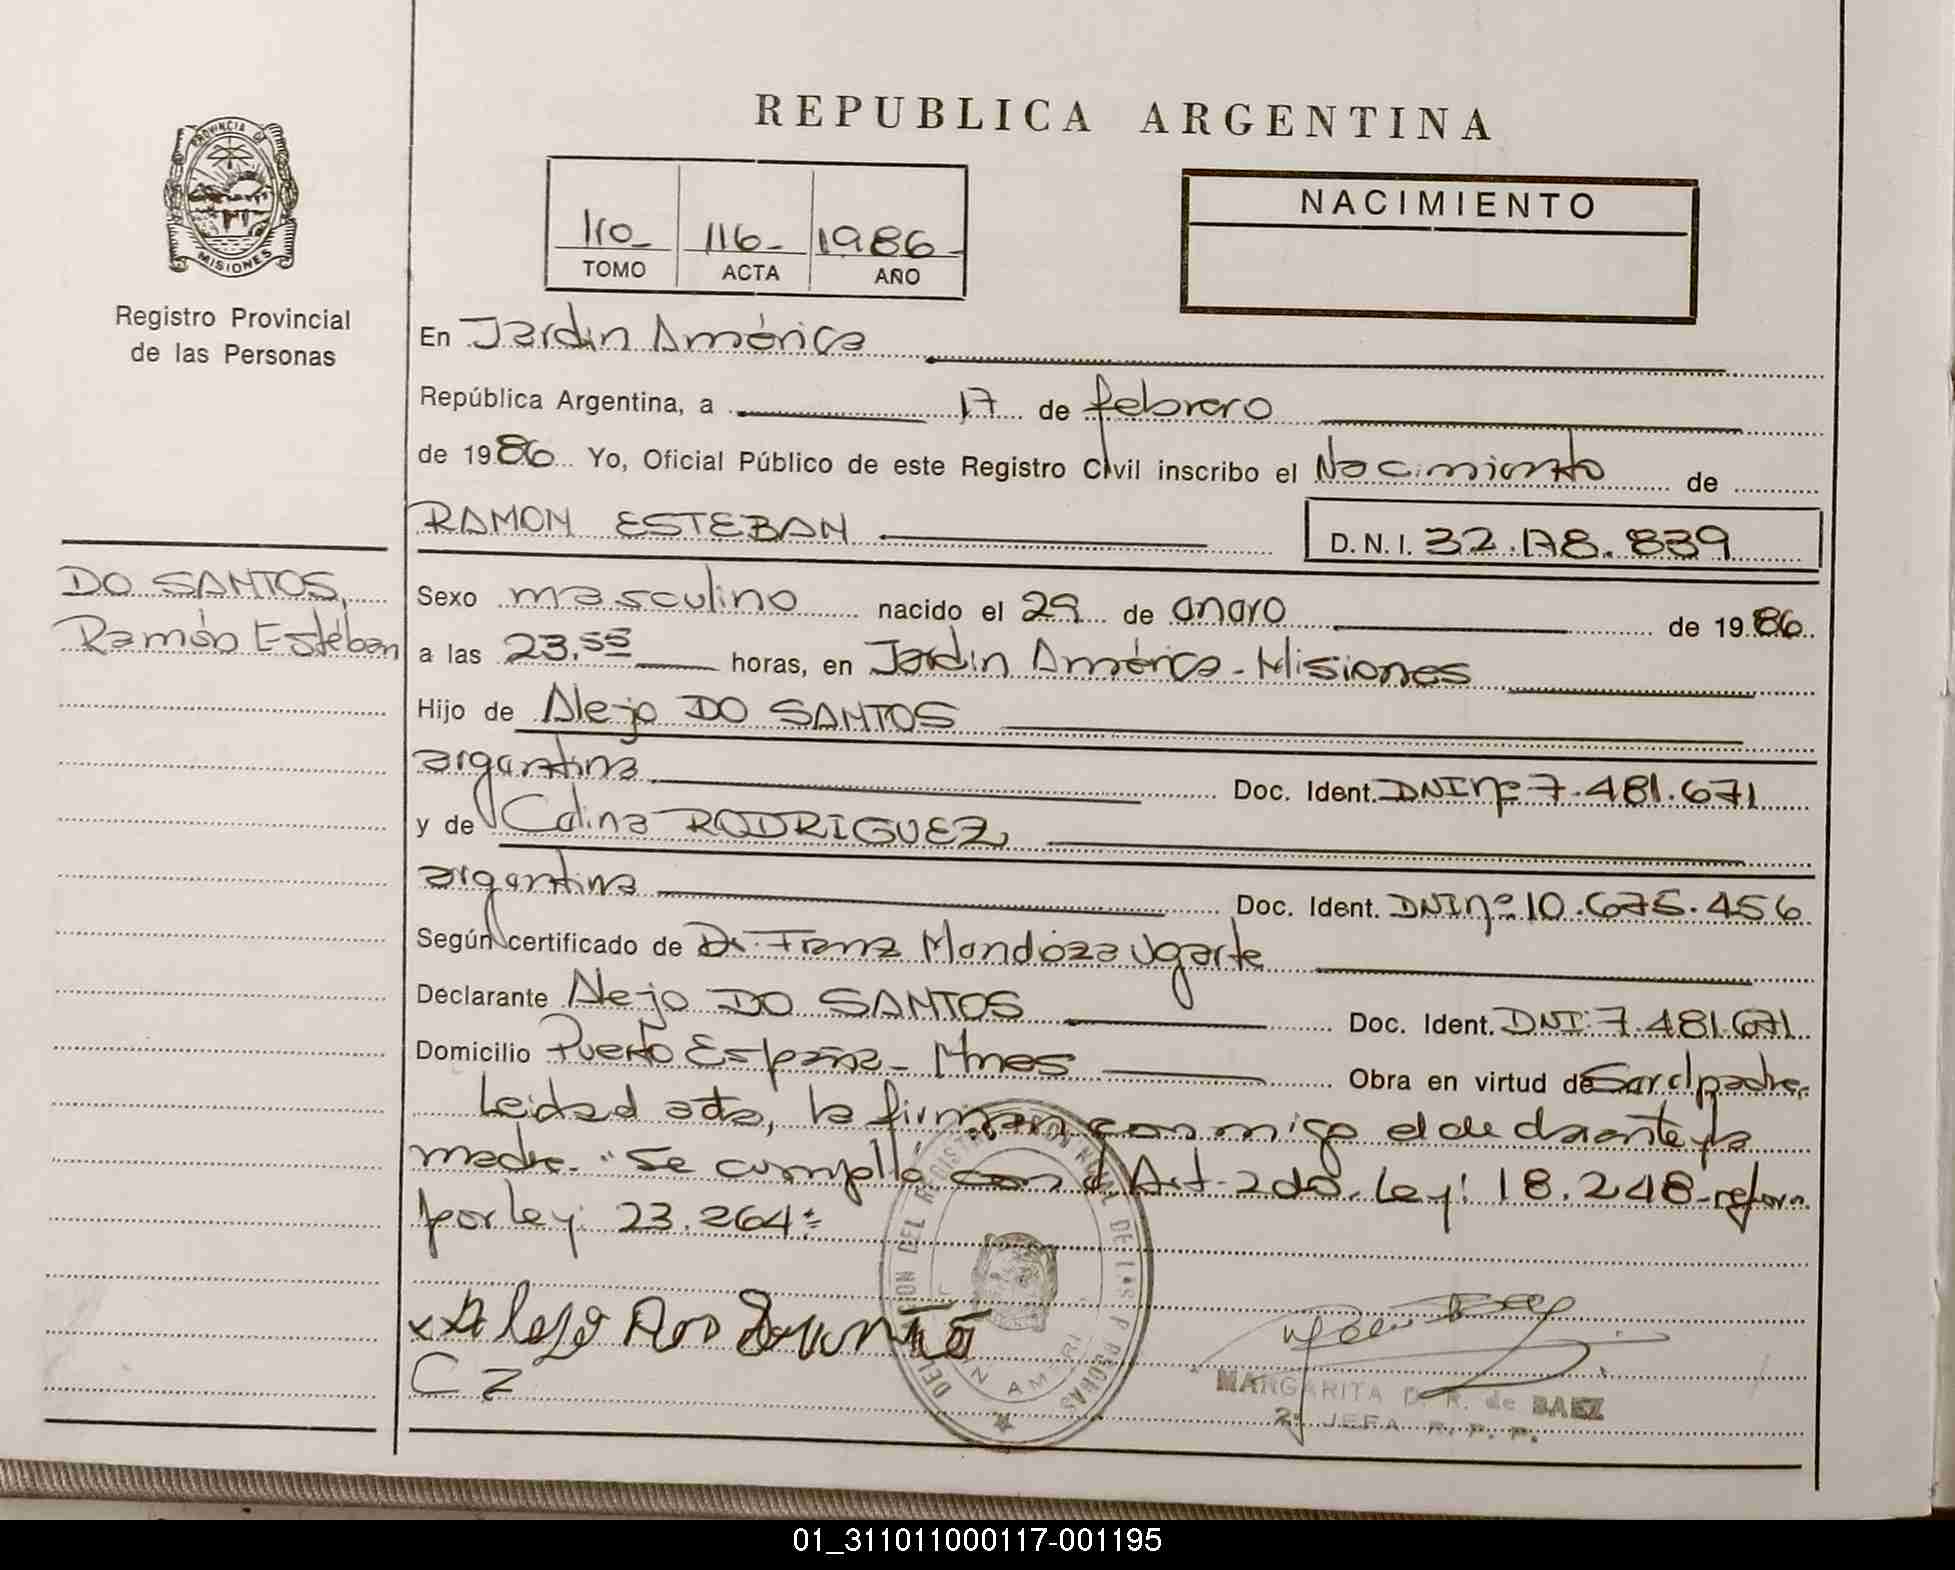 REPUBLICA ARGENTINA
PROVINCIA DE
MISIONES
Registro Provincial
de las Personas
110 116 1986
TOMO ACTA AÑO
NACIMIENTO
En Jardin América
República Argentina, a 17 de febrero
de 1986 Yo, Oficial Público de este Registro Civil inscribo el Nacimiento de
RAMON ESTEBAN
D.N.I. 32.178.839
DO SANTOS,
Ramón Esteban
Sexo masculino nacido el 29 de enero de 1986
a las 23,55 horas, en Jardin América - Misiones
Hijo de Alejo DO SANTOS
argentina Doc. Ident. DNI nº 7.481.671
y de RODRIGUEZ
argentina Doc. Ident. DNI nº 10.675.456
Según certificado de Dr. Franz Mendoza Ugarte
Declarante Alejo DO SANTOS Doc. Ident. DNI: 7.481.671
Domicilio Puerto España - Mnes Obra en virtud de Ser el padre.
Leída el acta, la firman conmigo el declarante y la
madre. "Se cumplió con el Art. 2do. Ley: 18.248 - reform.
por ley: 23.264"
x Alejo Dos
C Z
MARGARITA D. R. de BAEZ
2ª JEFA R. P. P.
01_311011000117-001195